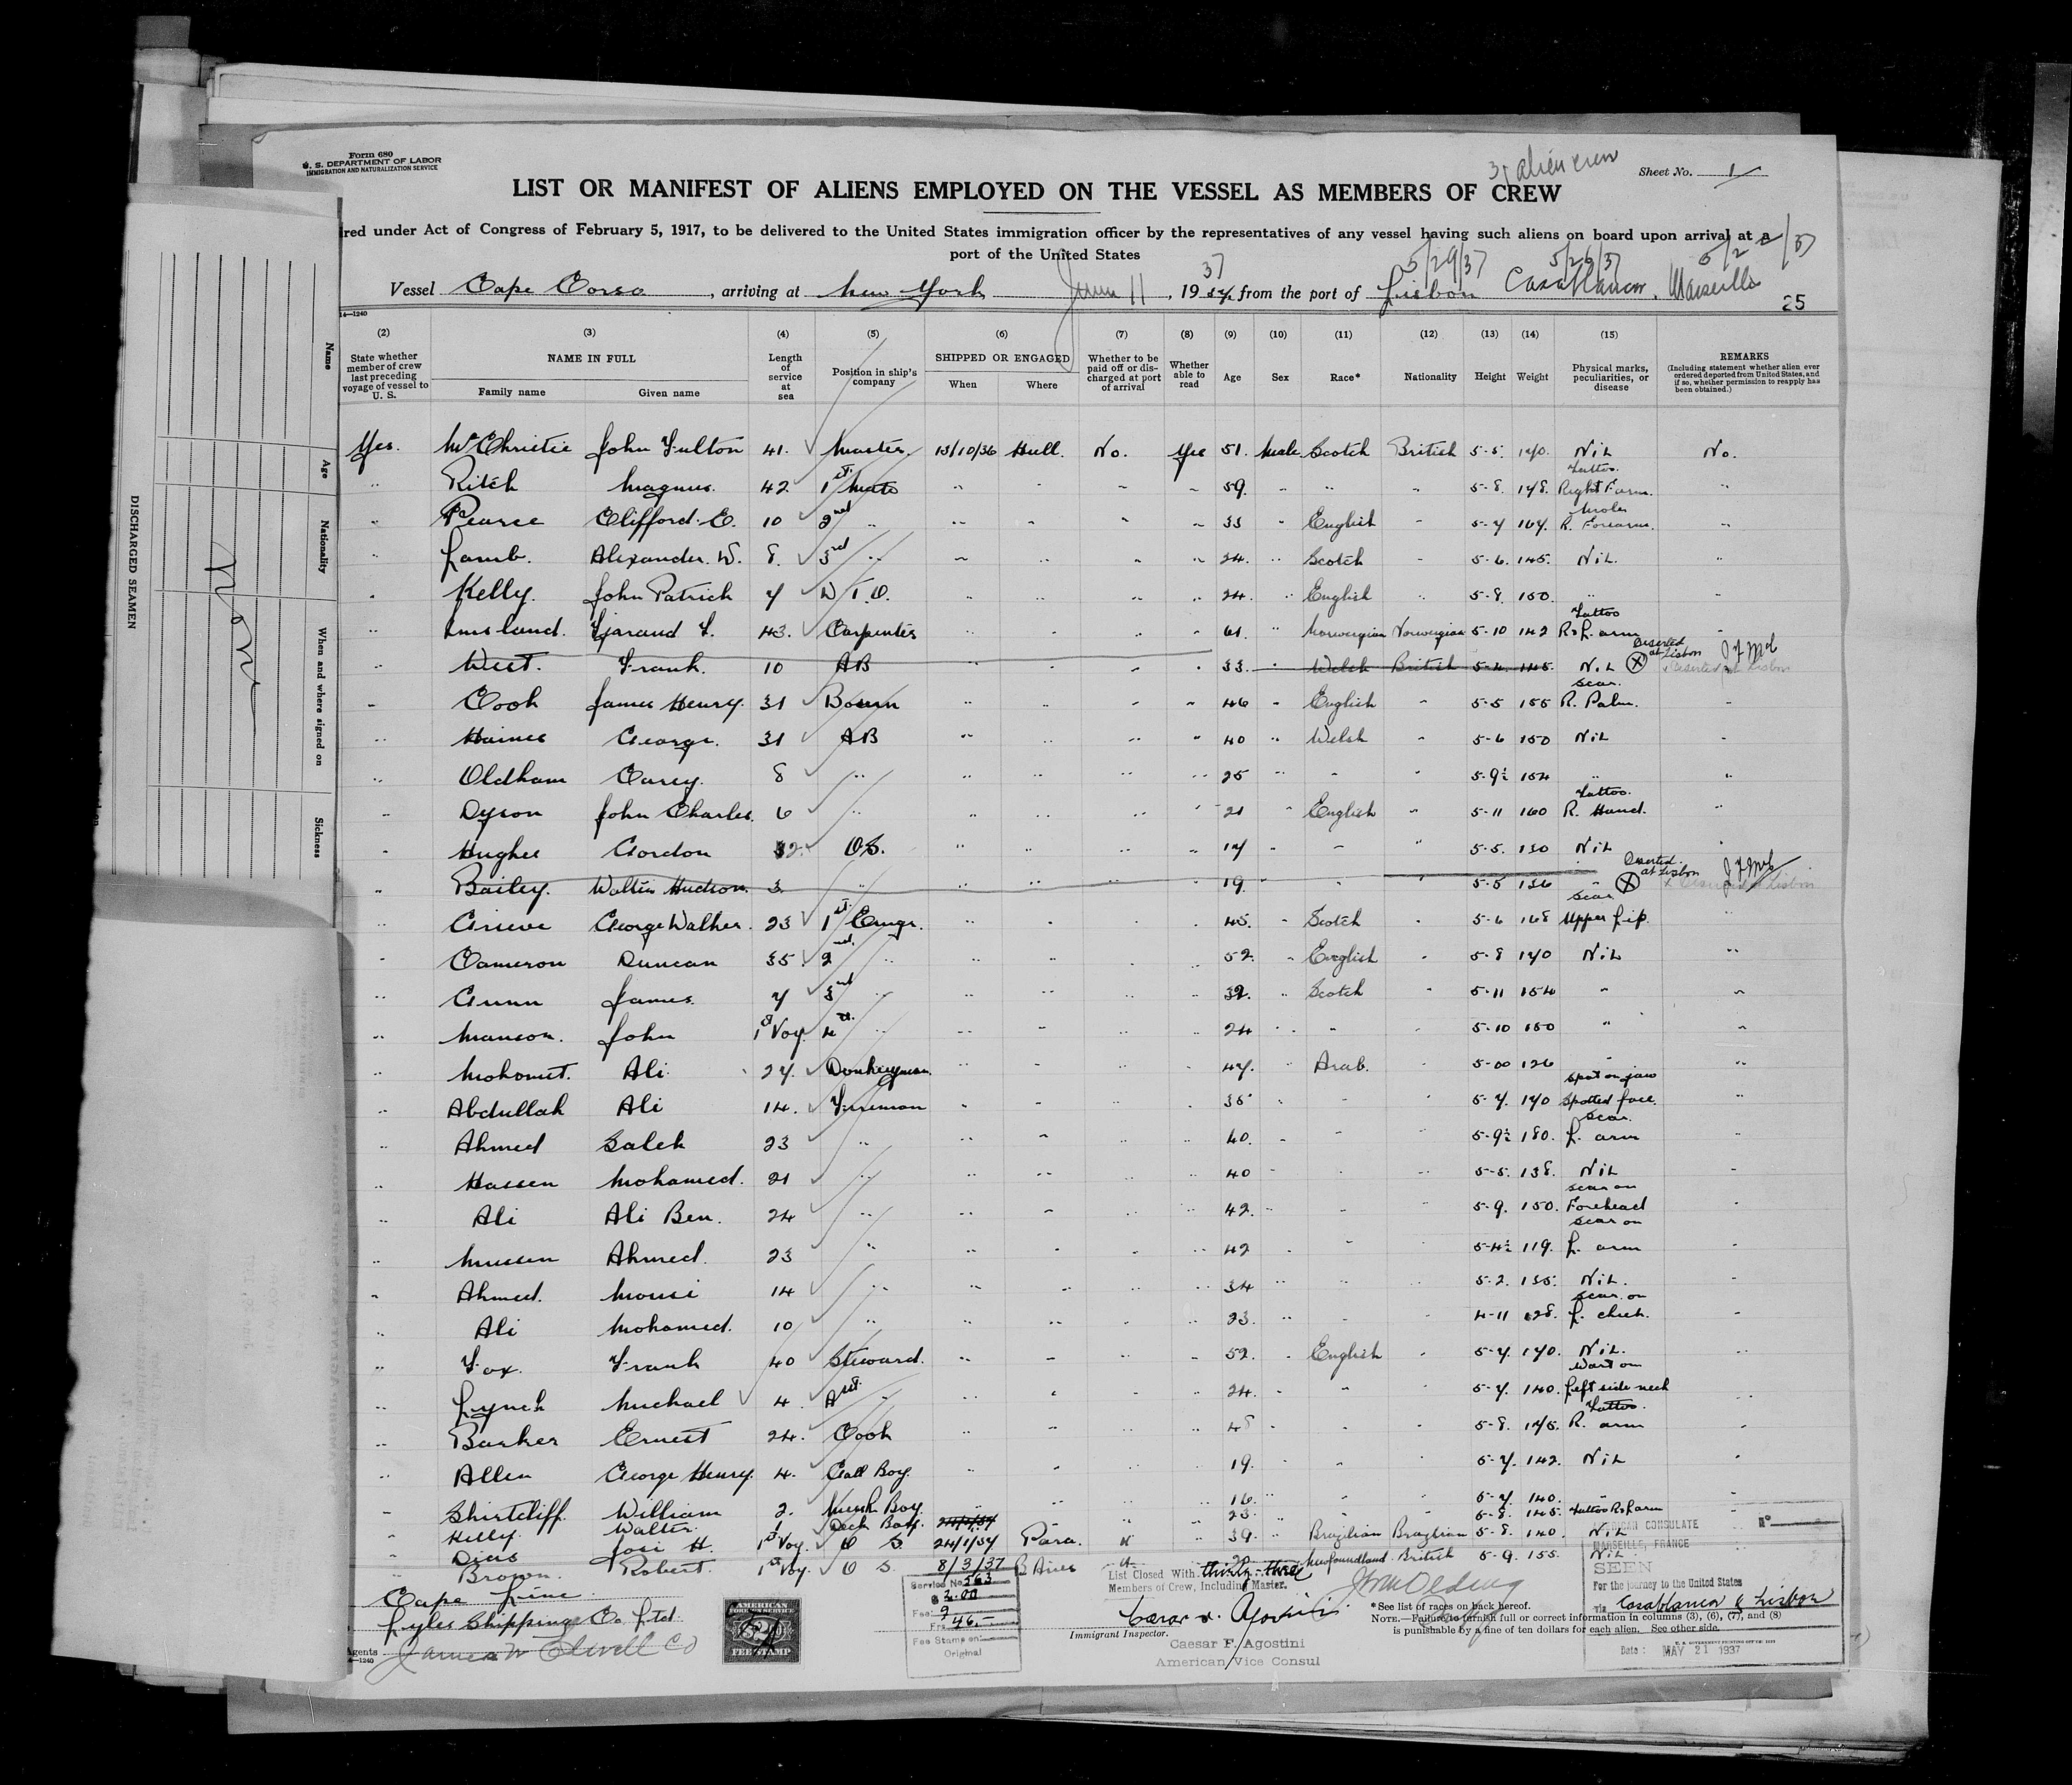 Form 680
U. S. DEPARTMENT OF LABOR
IMMIGRATION AND NATURALIZATION SERVICE
31 alien crew
Sheet No. 1
LIST OR MANIFEST OF ALIENS EMPLOYED ON THE VESSEL AS MEMBERS OF CREW
red under Act of Congress of February 5, 1917, to be delivered to the United States immigration officer by the representatives of any vessel having such aliens on board upon arrival at a
port of the United States
37 5/29/37 5/26/37 5/2 /37
Vessel Cape Corso, arriving at New York June 11, 19 from the port of Lisbon Casablanca, Marseille
25
14—1240
(2) (3) (4) (5) (6) (7) (8) (9) (10) (11) (12) (13) (14) (15)
State whether member of crew last preceding voyage of vessel to U. S.
NAME IN FULL
Family name Given name
Length of service at sea
Position in ship's company
SHIPPED OR ENGAGED
When Where
Whether to be paid off or discharged at port of arrival
Whether able to read
Age Sex Race* Nationality Height Weight
Physical marks, peculiarities, or disease
REMARKS
(Including statement whether alien ever ordered deported from United States, and if so, whether permission to reapply has been obtained.)
Yes. McChristie John Fulton 41. Master 13/10/36 Hull. No. Yes 51. Male Scotch British 5-5. 170. Nil No.
" Ritch Magnus. 42 1st Mate " " " " 59. " " " 5-8. 178. Tattoo. Right F arm. "
" Pearce Clifford. C. 10 2nd " " " " " 33 " English " 5-7 167. Moles R. Forearm. "
" Lamb. Alexander. W. 8. 3rd " " " " " 24. " Scotch " 5-6. 145. Nil. "
" Kelly. John Patrick 7 W/T.O. " " " " 24. " English " 5-8 150. " "
" Gjarand F. 43. Carpenter " " " " 61. " Norwegian Norwegian 5-10 142 Tattoo R & L arm "
" West. Frank. 10 AB " " " " 33. " Welsh British 5-4. 145. Nil Deserted at Lisbon
" Cook James Henry. 31 Bosun " " " " 46 " English " 5-5 155 scar. R. Palm. "
" Haines George. 31 AB " " " " 40 " Welsh " 5-6 150 Nil "
" Oldham Carey. 8 " " " " " 25 " " " 5-9½ 154 " "
" Dyson John Charles. 6 " " " " " 21 " English " 5-11 160 Tattoo. R. Hand. "
" Hughes Gordon OS. " " " " 17 " " " 5-5. 130 Nil "
" Bailey. Walter Hudson. 3. " " " " " 19. " " " 5-5 136 " Deserted at Lisbon
" Grieve George Walker. 23 1st Engr. " " " " 45. " Scotch " 5-6 168 scar Upper Lip. "
" Cameron Duncan 35. 2nd " " " " " 52. " English " 5-8 170 Nil "
" Gunn James. 7 3rd " " " " " 32. " Scotch " 5-11 154 " "
" Manson. John 1st Voy. 4th " " " " " 24 " " " 5-10 150 " "
" Mohomet. Ali 27. Donkeyman. " " " " 47. " Arab. " 5-00 126 " "
" Abdullah Ali 14. Fireman " " " " 35 " " " 5-7. 170 spot on jaw Spotted face. "
" Ahmed Saleh 23 " " " " " 40. " " " 5-9½ 180. Scar. L. arm "
" Hassen Mohamed. 21 " " " " " 40 " " " 5-5. 138. Nil "
" Ali Ali Ben. 24 " " " " " 42. " " " 5-9. 150. scar on Forehead "
" Mussen Ahmed. 23 " " " " " 42 " " " 5-4½ 119. scar on L. arm "
" Ahmed. Mousi 14 " " " " " 34 " " " 5-2. 135. Nil. "
" Ali Mohamed. 10 " " " " " 23. " " " 4-11 128. scar on L. cheek. "
" Fox. Frank 40 Steward. " " " " 52. " English " 5-7. 170. Nil. "
" Lynch Michael 4. Asst. " " " " " 24. " " " 5-7. 140. Wart on left side neck "
" Barker Ernest 24. Cook " " " " 48 " " " 5-8. 175. Tattoo. R. arm "
" Allen George Henry. 4. Gall Boy. " " " " 19. " " " 5-7. 142. Nil "
" Shirtcliff. William 2. Mess Boy. " " " " 16. " " " 5-7. 140. " "
" Kelly. Walter. 1 Deck Boy. " " " 23. " " " 5-8. 145. Tattoo R & L arm
" Dias Jose H. 1st Voy. O S. 24/1/37 Para. " 39. " Brazilian Brazilian 5-8. 140. Nil
" Brown. Robert. 1st Voy. O S. 8/3/37 B Aires " 20 Newfoundland British 5-9. 155. Nil
Cape Line
Lyles Shipping Co Ltd.
Agents James W Elwell Co
14—1240
AMERICAN
FOREIGN SERVICE
FEE STAMP
Service No 563
$ 2.00
Fee:
Frs 46.—
Fee Stamp on:
Original
List Closed With thirty-three
Members of Crew, Including Master.
Caesar F. Agostini
Immigrant Inspector.
Caesar F. Agostini
American Vice Consul
*See list of races on back hereof.
NOTE.—Failure to furnish full or correct information in columns (3), (6), (7), and (8)
is punishable by a fine of ten dollars for each alien. See other side.
U. S. GOVERNMENT PRINTING OFFICE
AMERICAN CONSULATE
MARSEILLE, FRANCE
No
SEEN
For the journey to the United States
Via Casablanca & Lisbon
Date: MAY 21 1937
DISCHARGED SEAMEN
Name
Age
Nationality
When and where signed on
Sickness
None